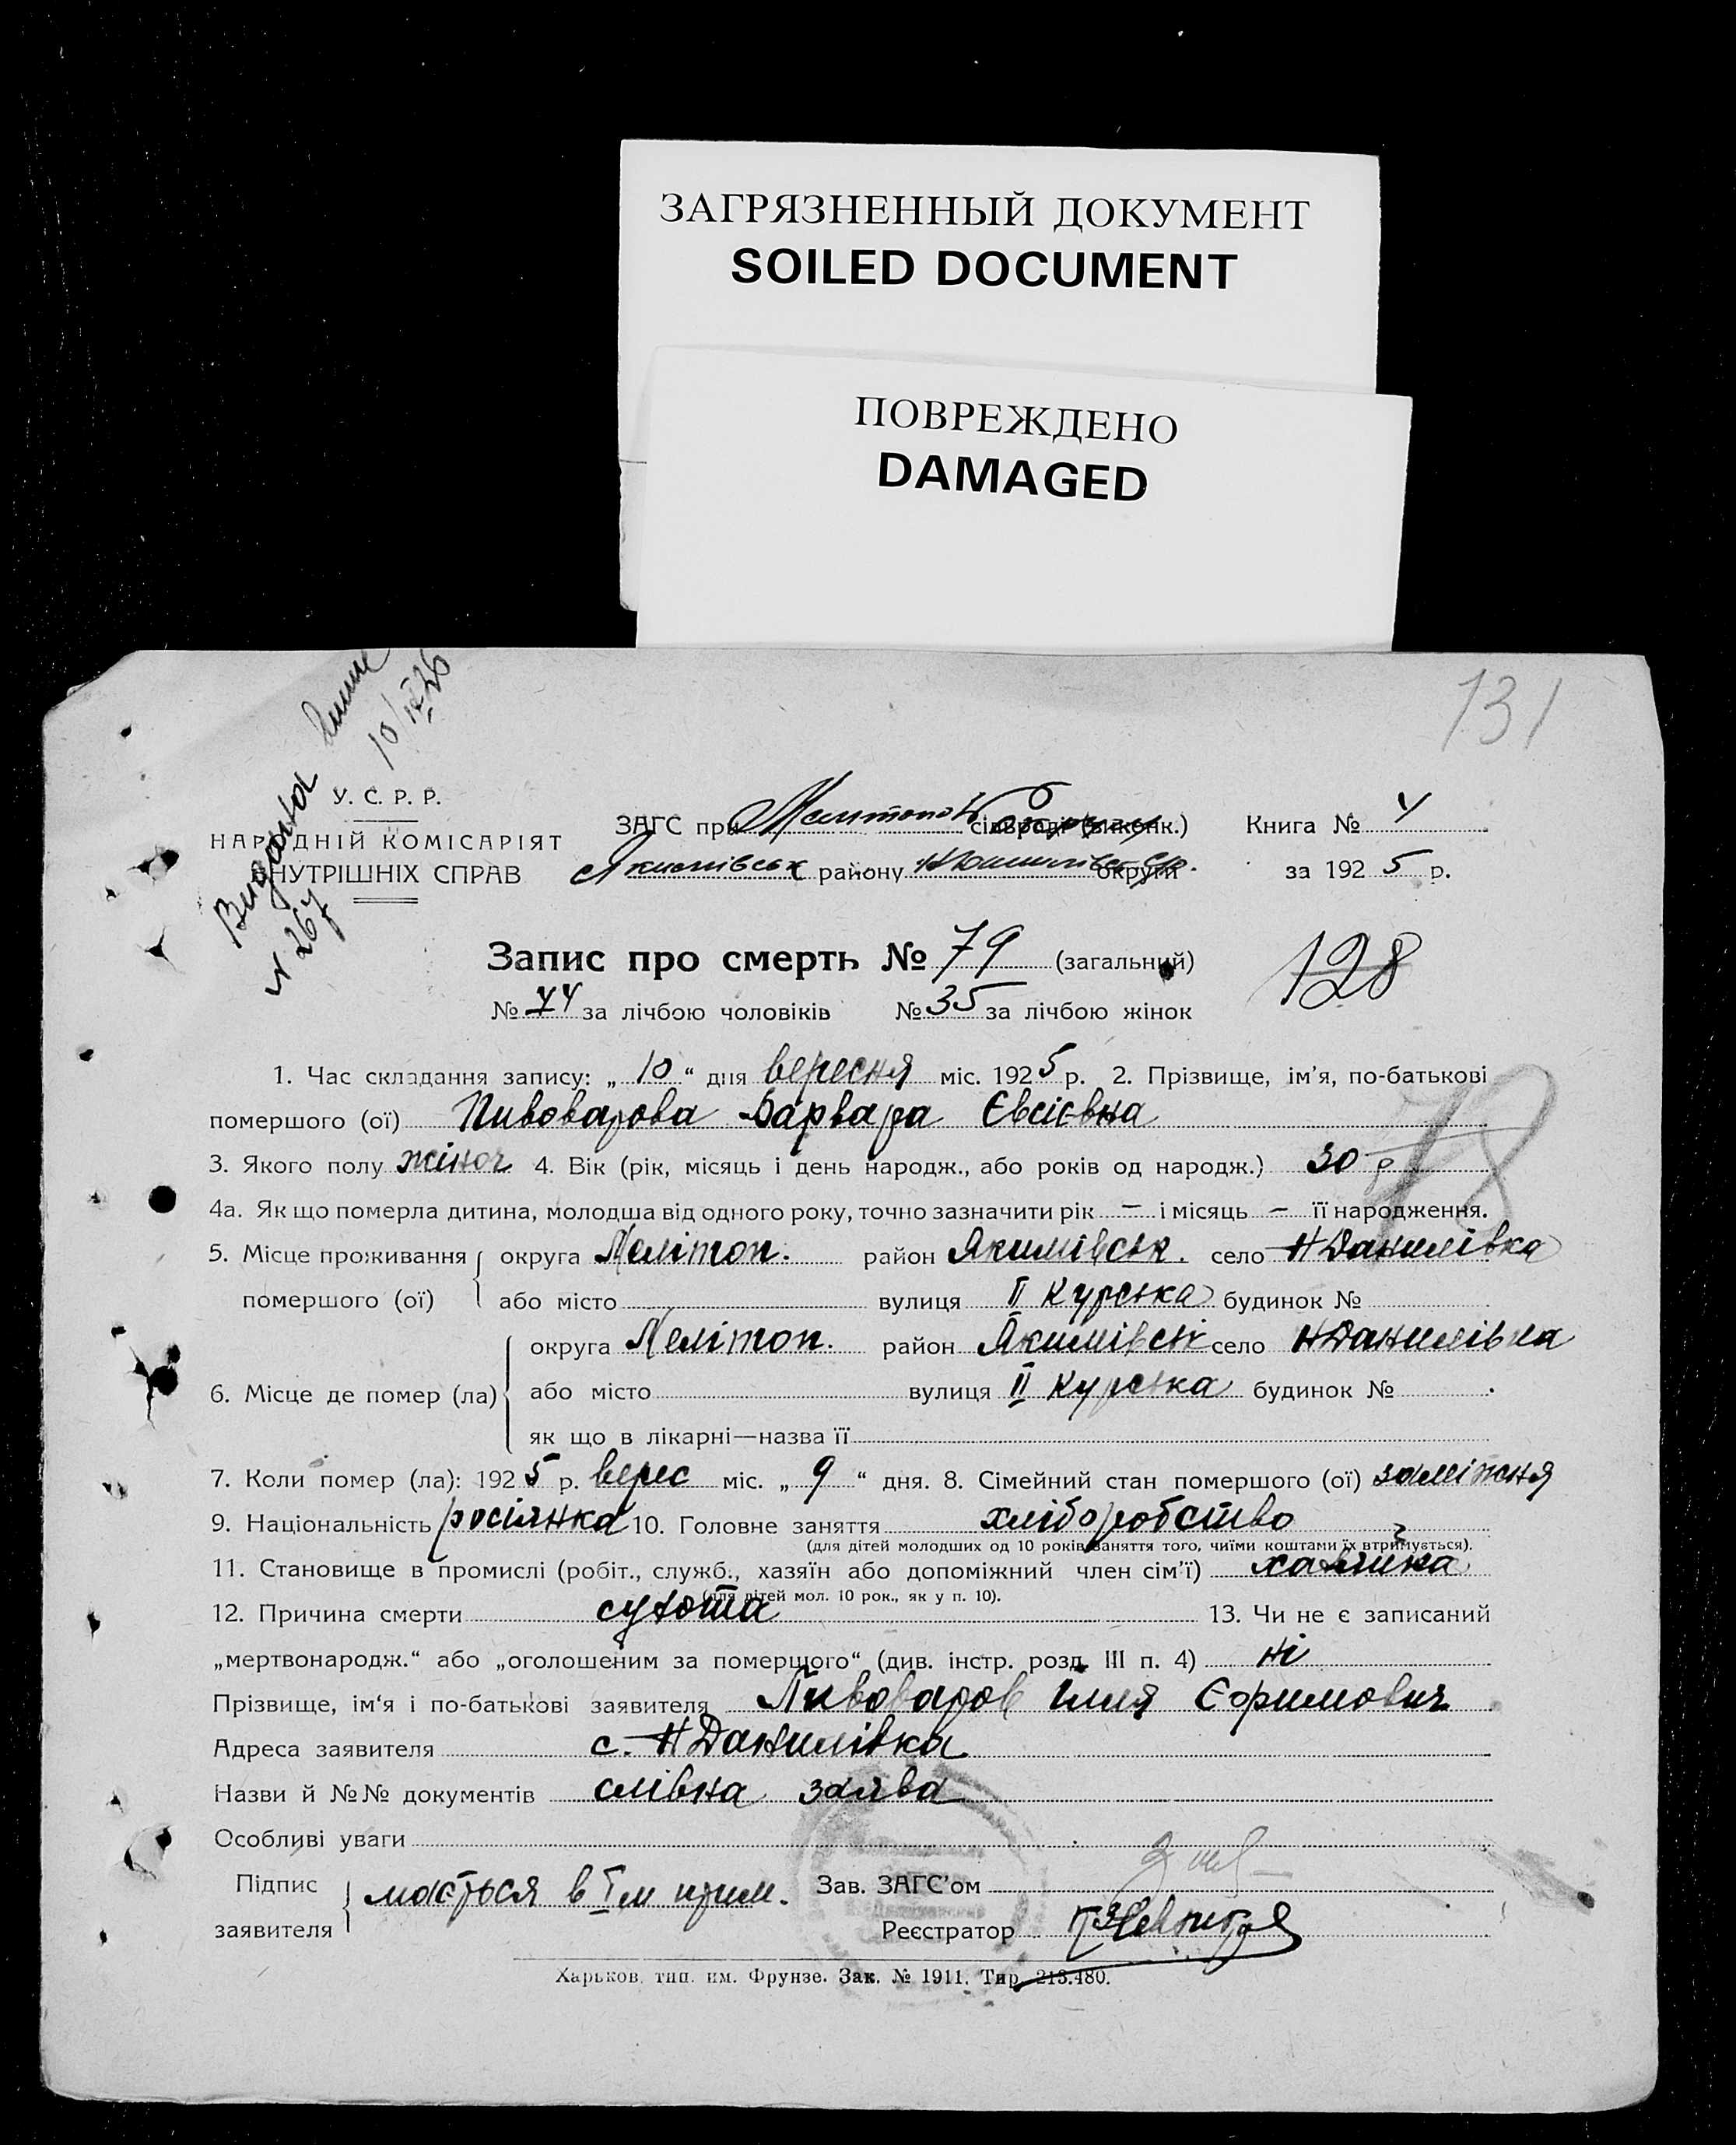 ЗАГРЯЗНЕННЫЙ ДОКУМЕНТ
SOILED DOCUMENT
ПОВРЕЖДЕНО
DAMAGED
131
Видано
10/IX 26
№ 267
У. С. Р. Р.
НАРОДНІЙ КОМІСАРІЯТ
ВНУТРІШНІХ СПРАВ
ЗАГС при Мелітоп. сільраді (виконк.) Книга № 4
Якимівськ району Н Данилівськ округи за 1925 р.
Запис про смерть № 79 (загальний)
128
№ 44 за лічбою чоловіків № 35 за лічбою жінок
1. Час складання запису: „ 10 “ дня вересня міс. 1925 р. 2. Прізвище, ім’я, по-батькові
помершого (ої) Пивоварова Варвара Євсієвна
78
3. Якого полу жіноч 4. Вік (рік, місяць і день народж., або років од народж.) 30 р
4а. Як що померла дитина, молодша від одного року, точно зазначити рік — і місяць — її народження.
5. Місце проживання округа Меліноп. район Якимівськ. село Н Данилівка
помершого (ої) або місто вулиця II Курська будинок №
округа Мелітоп. район Якимівськ село Н Данилівка
6. Місце де помер (ла) або місто вулиця II Курська будинок №
як що в лікарні—назва її
7. Коли помер (ла): 1925 р. верес міс. „ 9 “ дня. 8. Сімейний стан помершого (ої) заміжня
9. Національність росіянка 10. Головне заняття хліборобство
(для дітей молодших од 10 років заняття того, чиїми коштами їх втримується).
11. Становище в промислі (робіт., служб., хазяїн або допоміжний член сім’ї) хазяйка
(для дітей мол. 10 рок., як у п. 10).
12. Причина смерти сухота 13. Чи не є записаний
„мертвонародж.“ або „оголошеним за помершого“ (див. інстр. розд. III п. 4) ні
Прізвище, ім‘я і по-батькові заявителя Пивоваров Ілля Єфимович
Адреса заявителя с. Н Данилівка
Назви й №№ документів слівна заява
Особливі уваги
Підпис мається в I м прим. Зав. ЗАГС’ом
заявителя Реєстратор
Харьков, тип. им. Фрунзе. Зак. № 1911. Тир. 213.480.